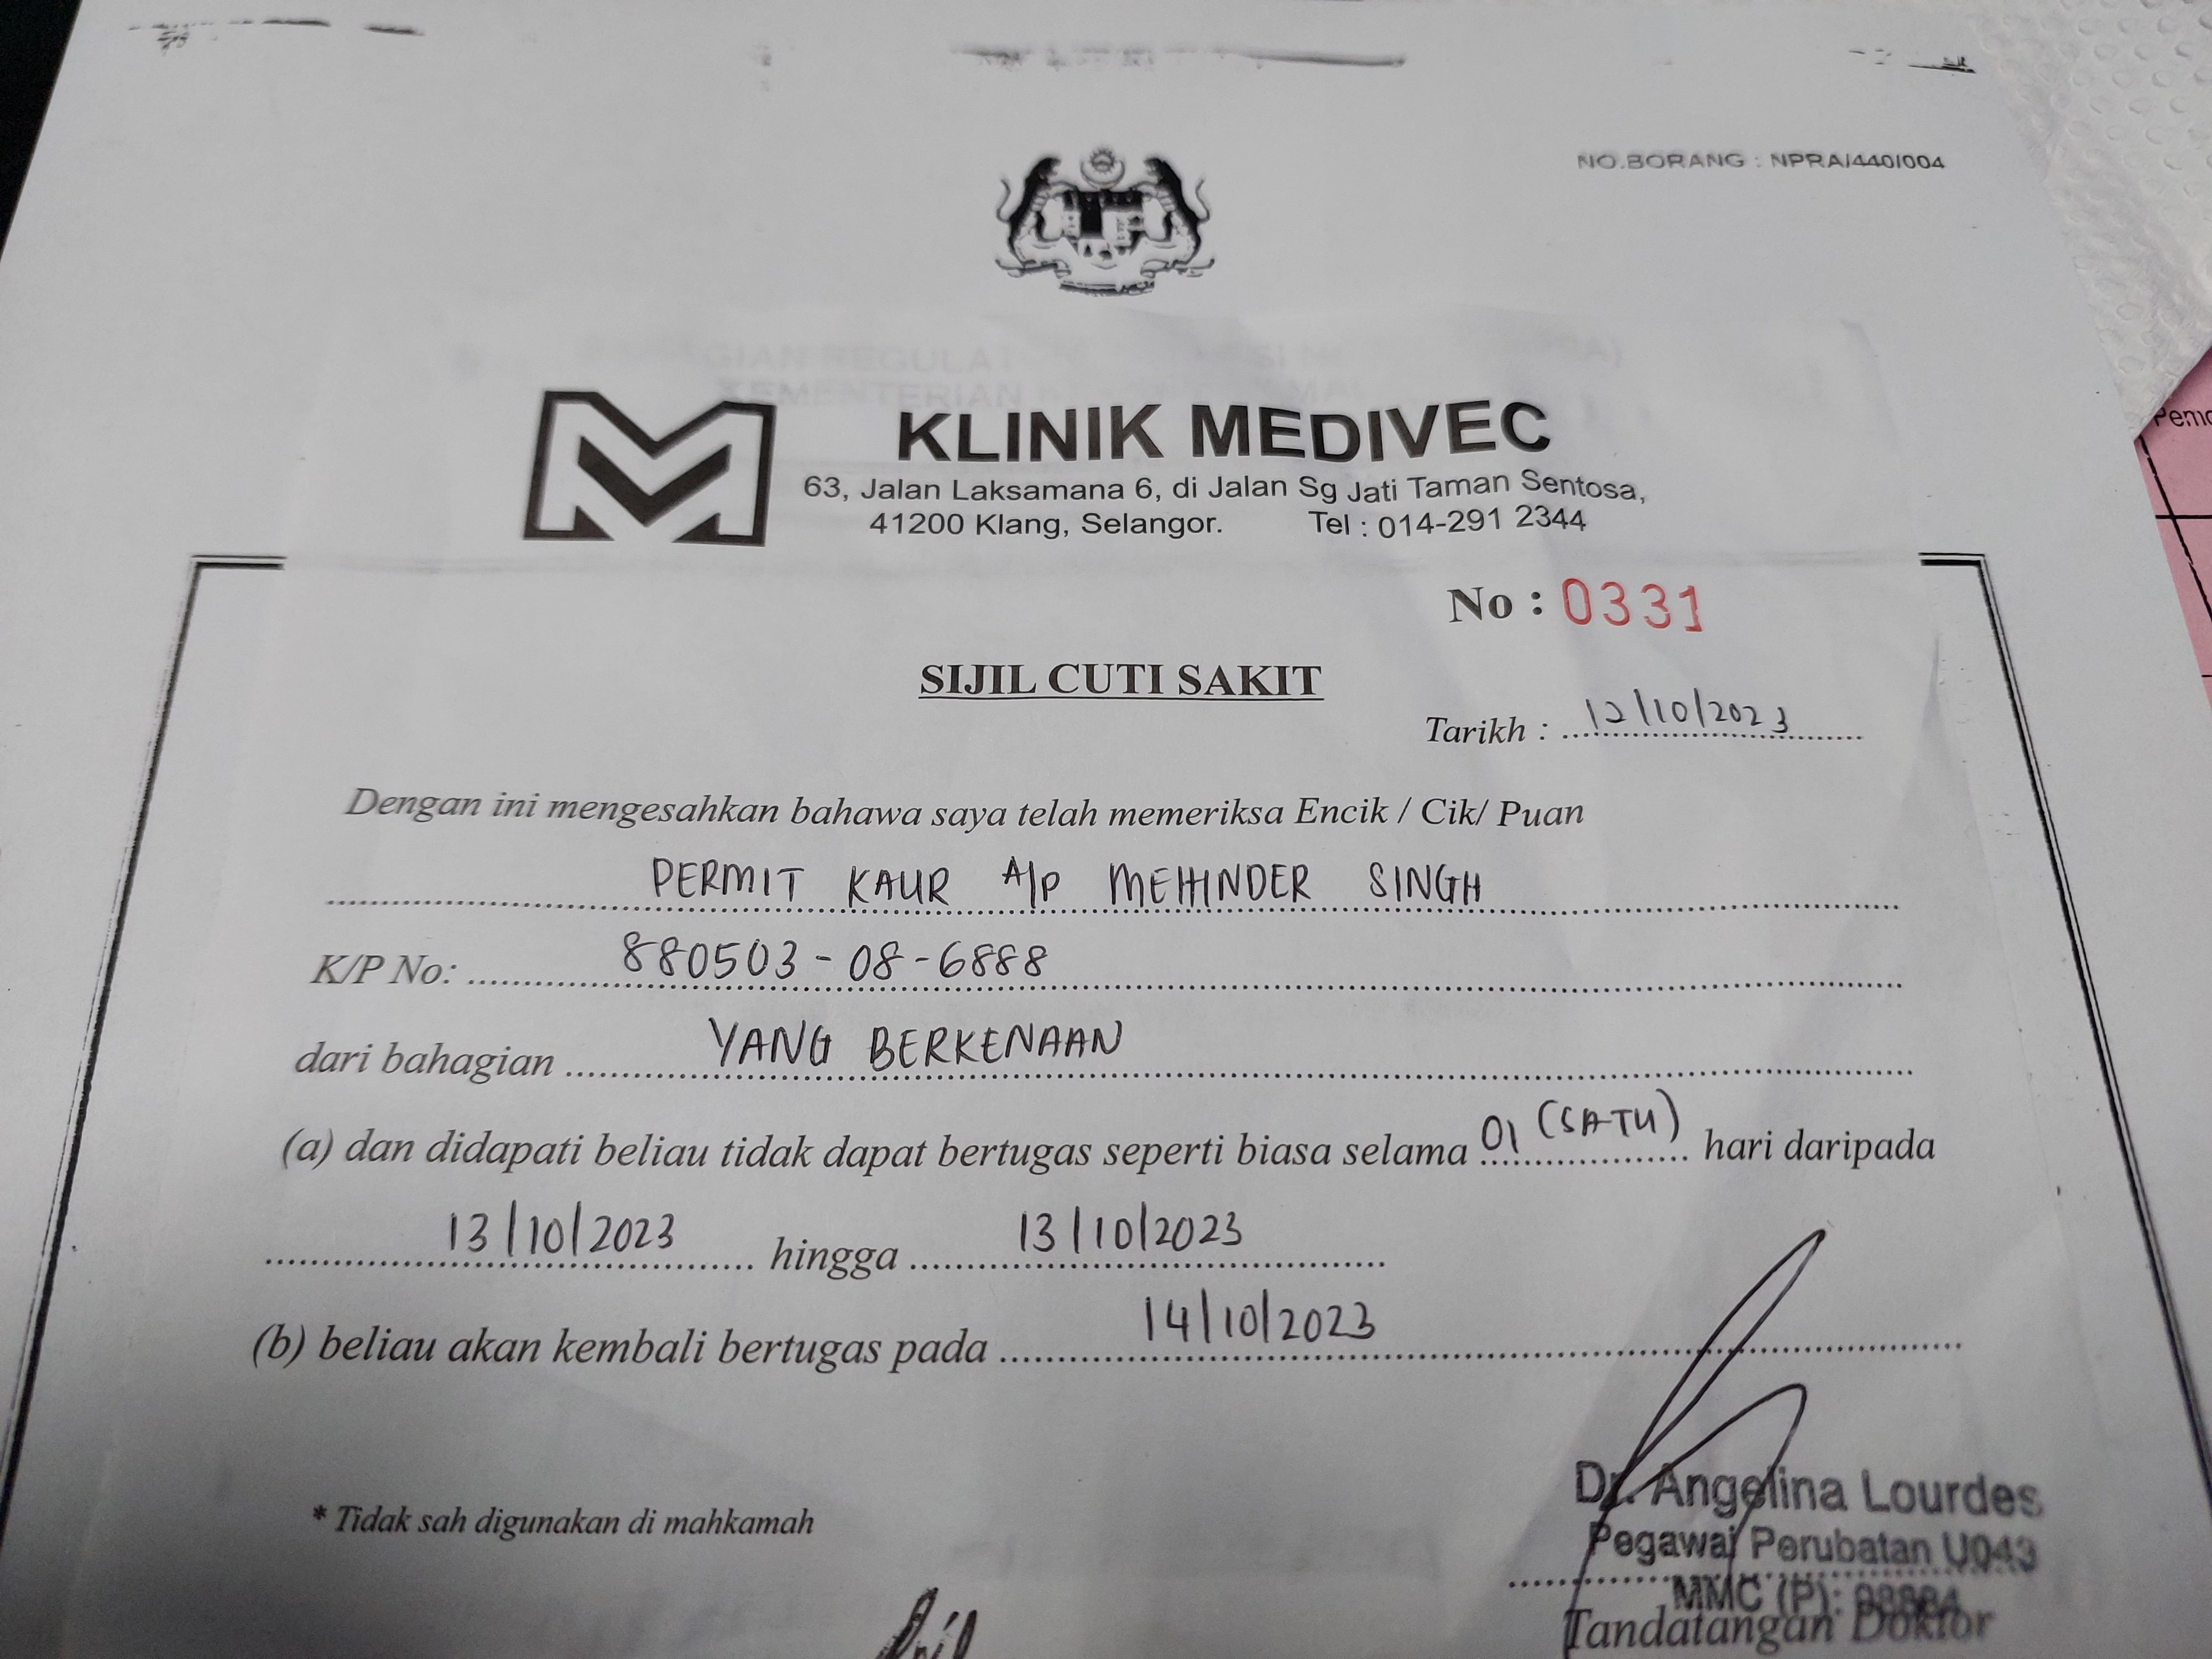 NO.BORANG : NPRA/440/004
KLINIK MEDIVEC
63, Jalan Laksamana 6, di Jalan Sg Jati Taman Sentosa,
41200 Klang, Selangor. Tel : 014-291 2344
No : 0331
SIJIL CUTI SAKIT
Tarikh : 12/10/2023
Dengan ini mengesahkan bahawa saya telah memeriksa Encik / Cik/ Puan
PERMIT KAUR A/P MEHINDER SINGH
K/P No: 880503-08-6888
dari bahagian YANG BERKENAAN
(a) dan didapati beliau tidak dapat bertugas seperti biasa selama 01 (SATU) hari daripada
13/10/2023 hingga 13/10/2023
(b) beliau akan kembali bertugas pada 14/10/2023
Dr. Angelina Lourdes
* Tidak sah digunakan di mahkamah
Pegawai Perubatan
MMC (P):
Tandatangan Doktor